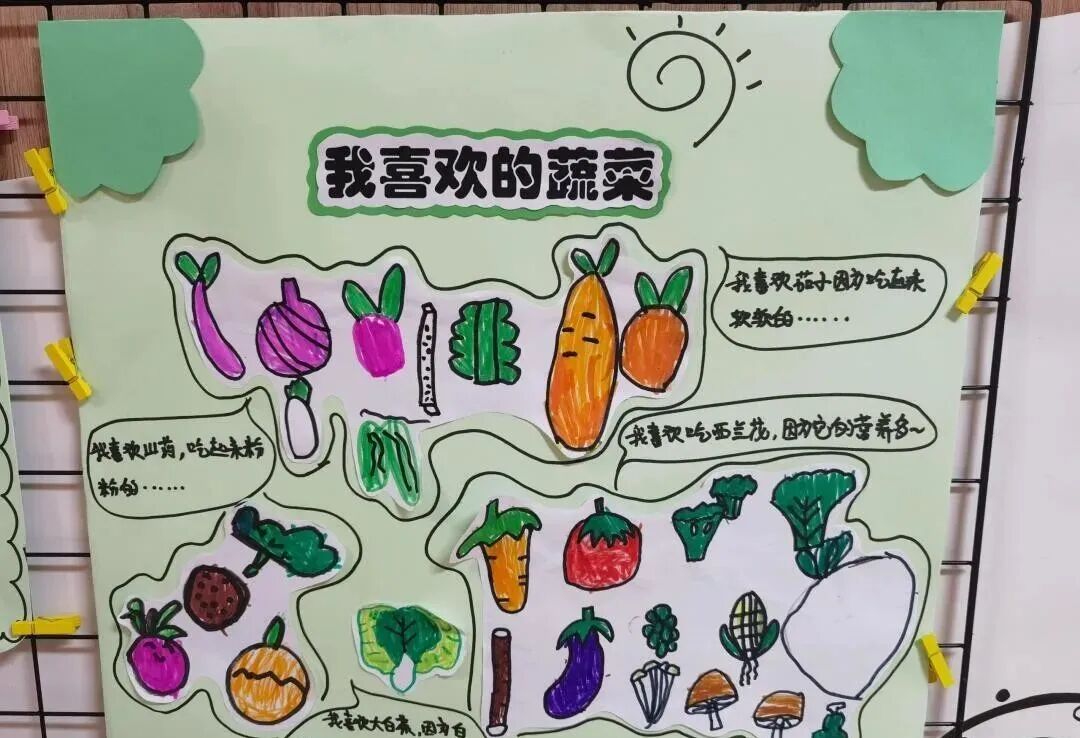 我喜欢的蔬菜
我喜欢茄子因为吃起来
软软的……
我喜欢吃西兰花，因为它的营养多~
我喜欢山药，吃起来粉
粉的……
我喜欢大白菜，因为白